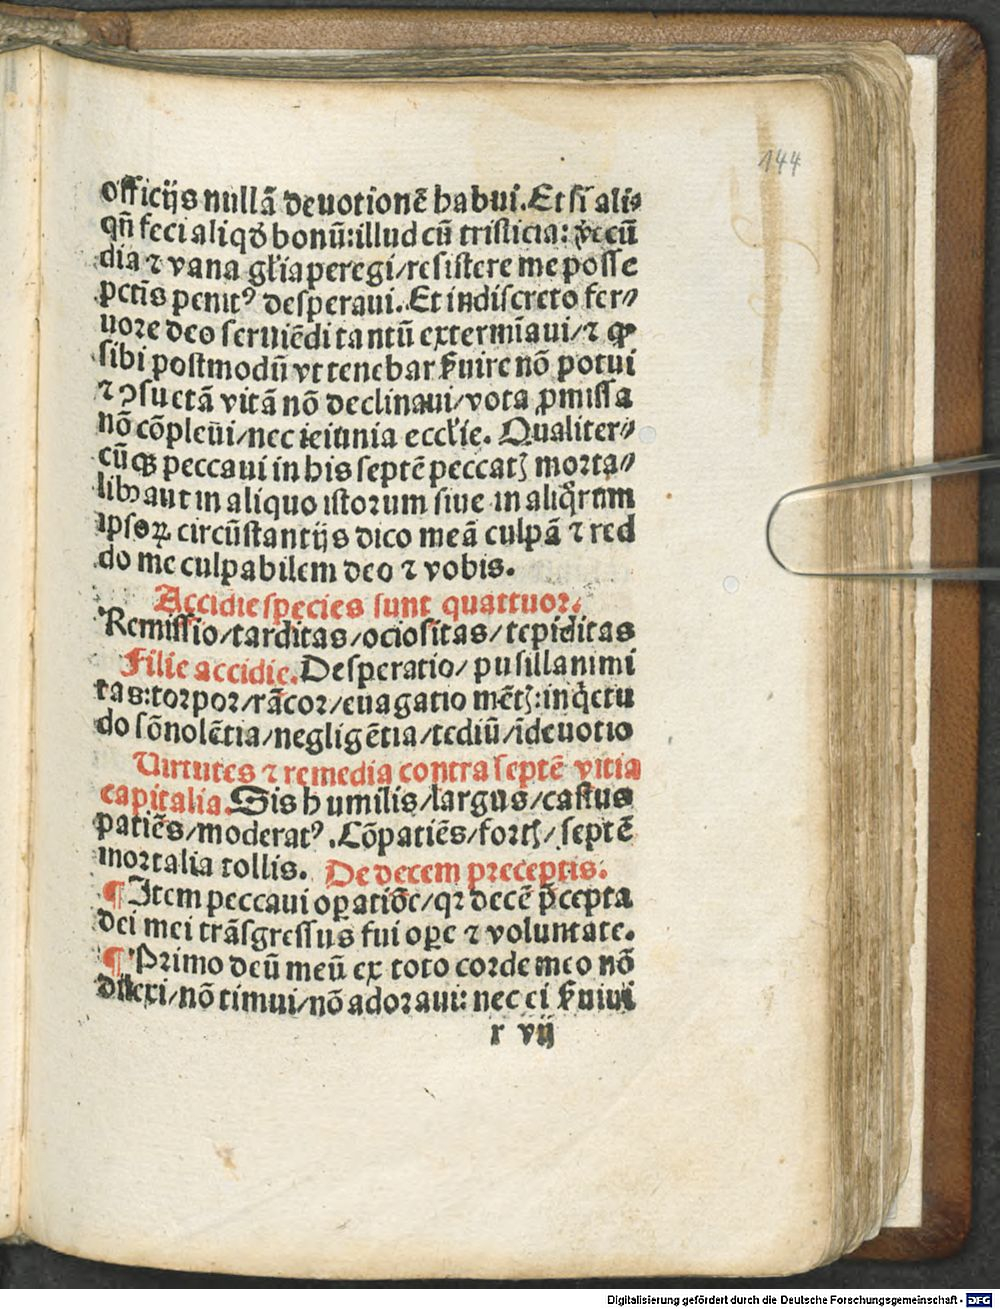 144
officijs nullā deuotionē habui. Et si ali-
qñ feci aliqđ bonū: illud cū tristicia: vecū
dia ⁊ vana gl'ia peregi/ resistere me posse
pctīs penitꝰ desperaui. Et indiscreto fer⸗
uore deo seruiēdi tantū extermīaui/ ⁊ ꝙ
sibi postmodū vt tenebar ẜuire nō potui
⁊ ꝯsuetā vitā nō declinaui/ vota ꝓmissa
nō cōpleui/ nec ieiunia eccl'ie. Qualiter⸗
cūꝙ peccaui in his septē peccatꝫ morta⸗
libꝰ aut in aliquo istorum siue in aliq̄rum
ipsoꝝ circūstantijs dico meā culpā ⁊ red
do me culpabilem deo ⁊ vobis.
Accidie species sunt quattuor.
Remissio/ tarditas/ ociositas/ tepiditas
Filie accidie. Desperatio/ pusillanimi
tas: torpor/ rācor/ euagatio mētꝫ: inq̇etu
do sōnolētia/ negligētia/ tediū/ īdeuotio
Virtutes ⁊ remedia contra septē vitia
capitalia. Sis humilis/ largus/ castus
patiēs/ moderatꝰ. Cōpatiēs/ fortꝫ/ septē
mortalia tollis. De decem preceptis.
¶ Item peccaui oꝑatiōe/ qꝛ decē p̄cepta
dei mei trāsgressus fui oꝑe ⁊ voluntate.
¶ Primo deū meū ex toto corde meo nō
dilexi/ nō timui/ nō adoraui: nec ei ẜuiui
r vij
Digitalisierung gefördert durch die Deutsche Forschungsgemeinschaft - DFG